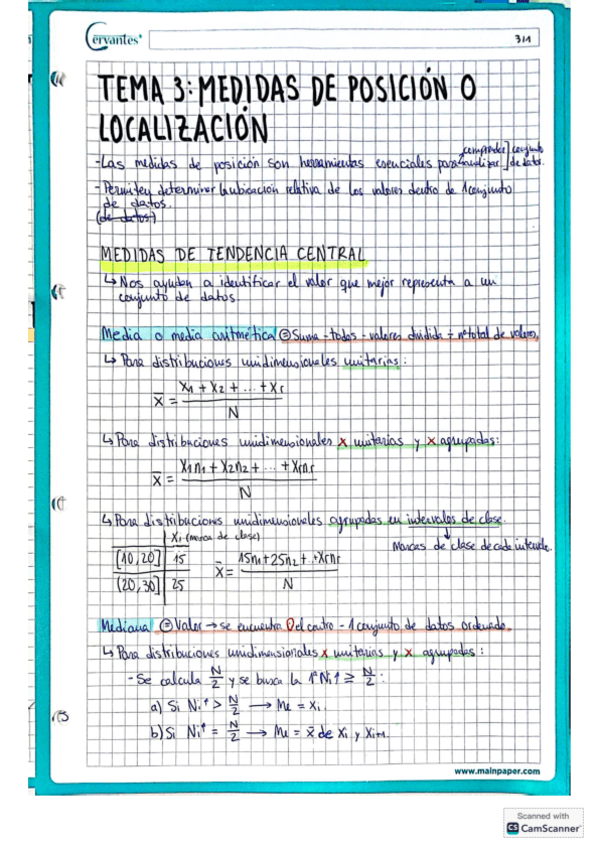 Cervantes
3/1
TEMA 3: MEDIDAS DE POSICIÓN O
LOCALIZACIÓN
-Las medidas de posición son herramientas esenciales para comprender] conjunto
analizar ] de datos.
- Permiten determinar la ubicación relativa de los valores dentro de 1 conjunto
de datos.
(de datos)
MEDIDAS DE TENDENCIA CENTRAL
↳ Nos ayudan a identificar el valor que mejor representa a un
conjunto de datos.
Media o media aritmética = Suma - todos - valores dividida ÷ nº total de valores,
↳ Para distribuciones unidimensionales unitarias:
x̄ = X1 + X2 + ... + Xr / N
↳ Para distribuciones unidimensionales x unitarias y x agrupadas:
x̄ = X1n1 + X2n2 + ... + Xrnr / N
↳ Para distribuciones unidimensionales agrupadas en intervalos de clase.
Marcas de clase de cada intervalo.
Xi (marca de clase)
[10,20] 15
(20,30] 25
x̄ = 15n1 + 25n2 + ..+ Xrnr / N
Mediana = Valor → se encuentra el centro - 1 conjunto de datos ordenado.
↳ Para distribuciones unidimensionales x unitarias y x agrupadas:
- Se calcula N/2 y se busca la 1ª Ni↑ ≥ N/2:
a) Si Ni↑ > N/2 → Me = xi.
b) Si Ni↑ = N/2 → Me = x̄ de Xi y Xi+1.
www.mainpaper.com
Scanned with
CS CamScanner